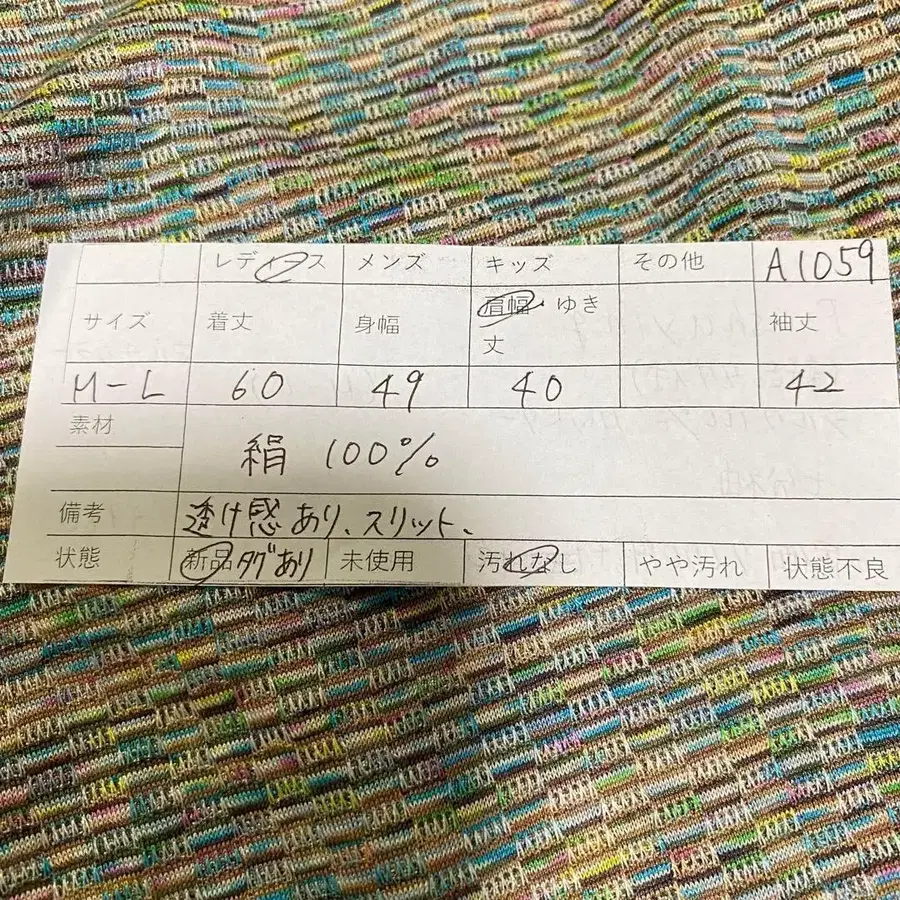 レディース メンズ キッズ その他 A1059
サイズ 着丈 身幅 肩幅・ゆき丈 袖丈
M-L 60 49 40 42
素材 絹 100%
備考 透け感あり、スリット、
状態 新品タグあり 未使用 汚れなし やや汚れ 状態不良